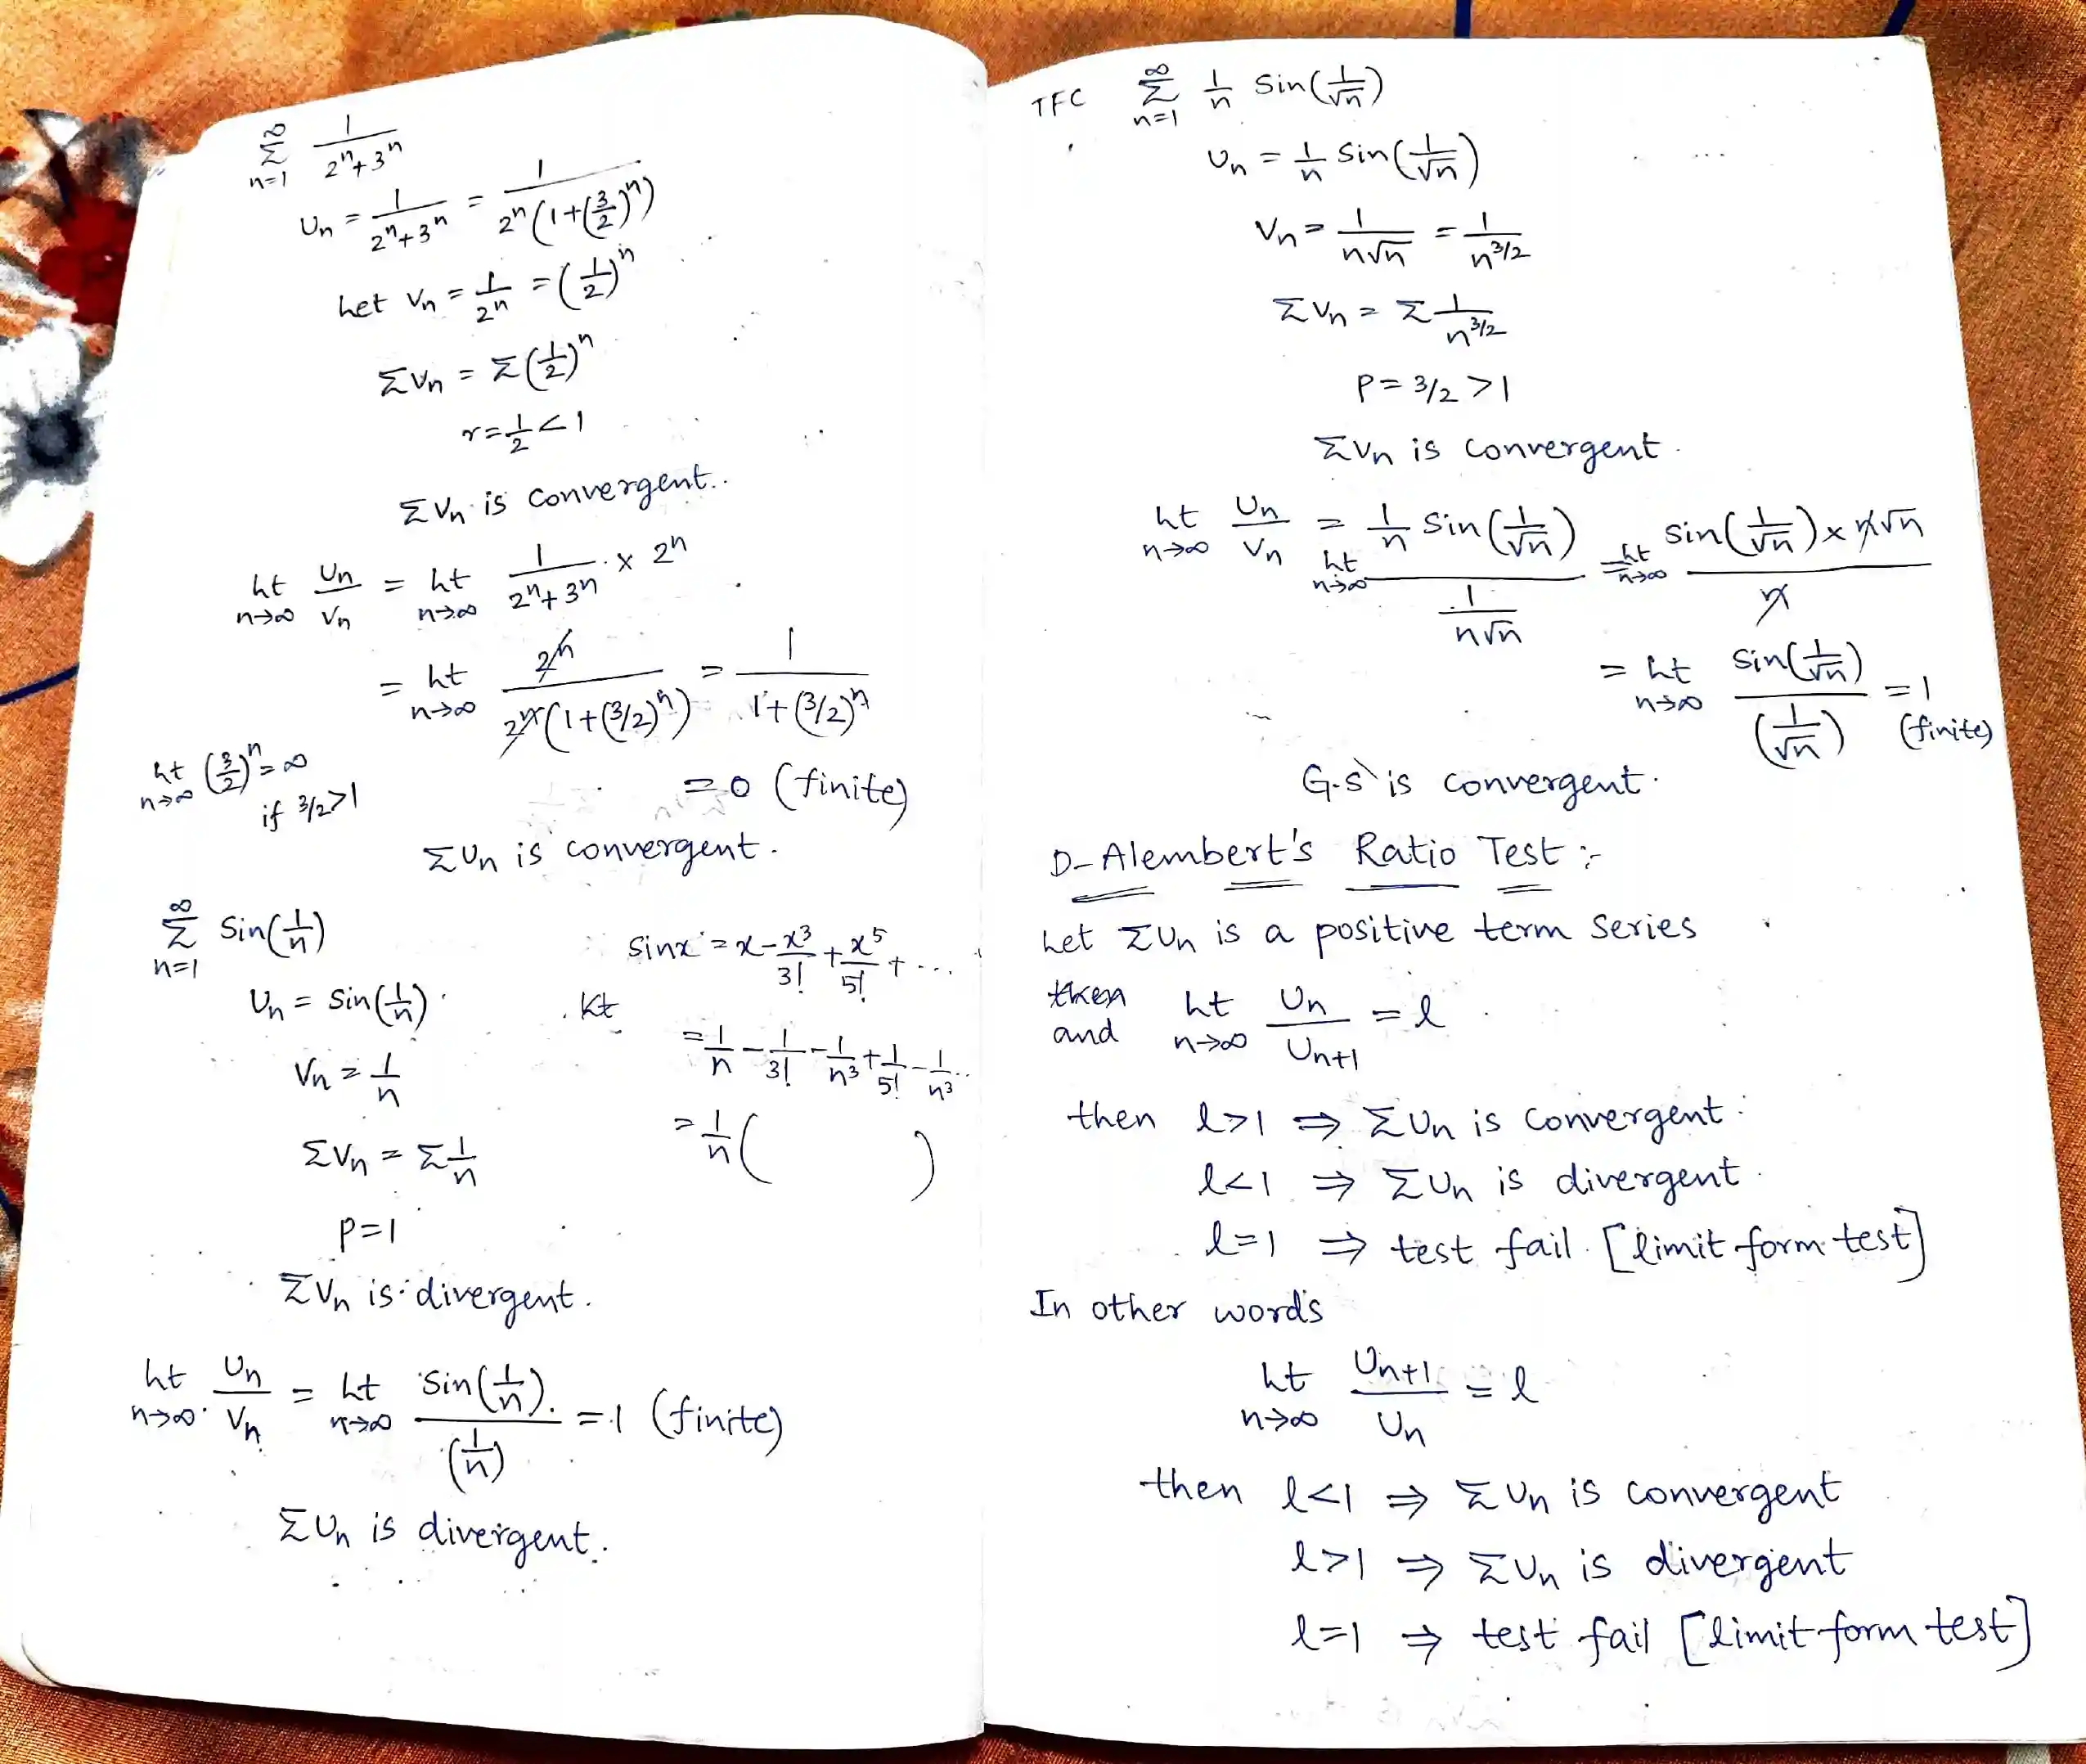 ∞Σn=1 1/(2ⁿ+3ⁿ)
Un = 1/(2ⁿ+3ⁿ) = 1/(2ⁿ(1+(3/2)ⁿ))
Let Vn = 1/2ⁿ = (1/2)ⁿ
ΣVn = Σ(1/2)ⁿ
r = 1/2 < 1
ΣVn is convergent..
Lt n→∞ Un/Vn = Lt n→∞ 1/(2ⁿ+3ⁿ) × 2ⁿ
= Lt n→∞ 2ⁿ/(2ⁿ(1+(3/2)ⁿ)) = 1/(1+(3/2)ⁿ)
Lt n→∞ (3/2)ⁿ = ∞
if 3/2>1
= 0 (finite)
ΣUn is convergent.
∞Σn=1 Sin(1/n)
Un = Sin(1/n)
Vn = 1/n
ΣVn = Σ1/n
P=1
ΣVn is divergent.
Kt Sinx = x - x³/3! + x⁵/5! + ...
= 1/n - 1/3! - 1/n³ + 1/5! - 1/n³ ...
= 1/n (          )
Lt n→∞ Un/Vn = Lt n→∞ Sin(1/n)/(1/n) = 1 (finite)
ΣUn is divergent.
TFC ∞Σn=1 1/n Sin(1/√n)
Un = 1/n Sin(1/√n)
Vn = 1/(n√n) = 1/n^(3/2)
ΣVn = Σ 1/n^(3/2)
P = 3/2 > 1
ΣVn is convergent.
Lt n→∞ Un/Vn = Lt n→∞ (1/n Sin(1/√n))/(1/(n√n)) = Lt n→∞ (Sin(1/√n) × n√n)/n
= Lt n→∞ Sin(1/√n)/(1/√n) = 1 (finite)
G.S is convergent.
D-Alembert's Ratio Test :-
Let ΣUn is a positive term series
and Lt n→∞ Un/Un+1 = l
then l>1 ⇒ ΣUn is convergent.
l<1 ⇒ ΣUn is divergent.
l=1 ⇒ test fail. [limit form test]
In other words
Lt n→∞ Un+1/Un = l
then l<1 ⇒ ΣUn is convergent
l>1 ⇒ ΣUn is divergent
l=1 ⇒ test fail [limit form test]